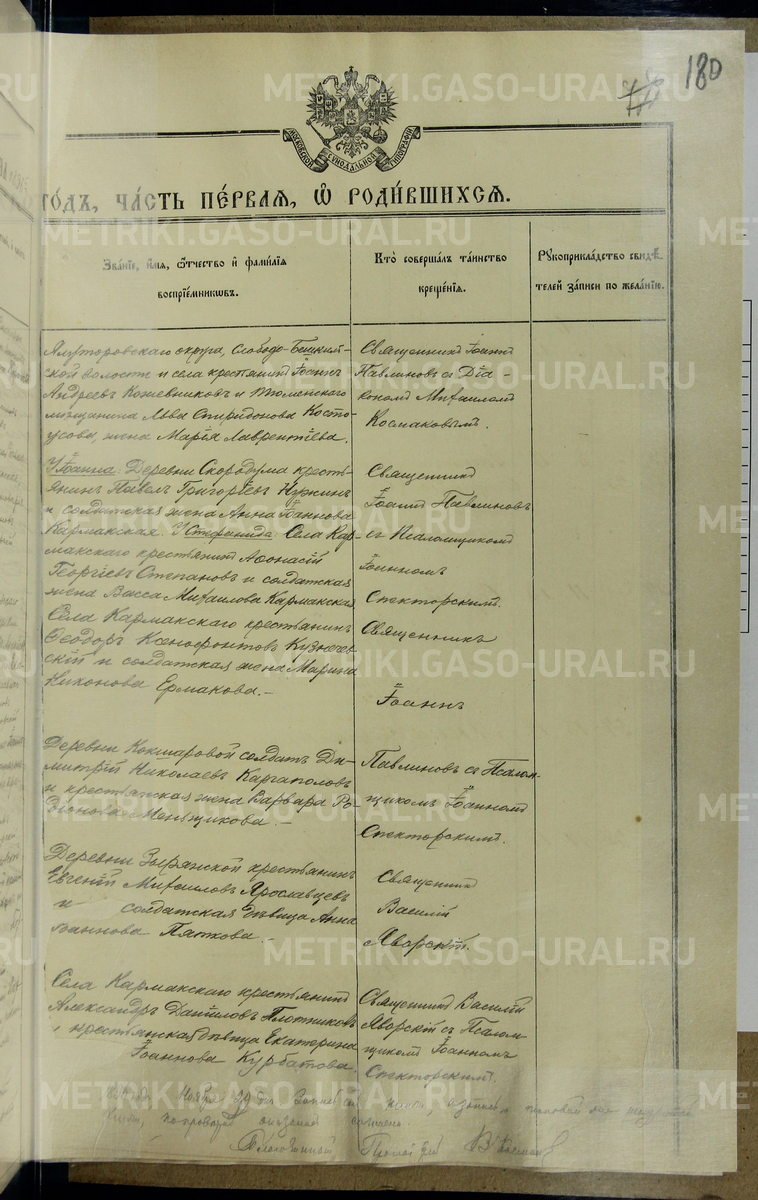 180
МОСКОВСКОЙ СѴНОДАЛЬНОЙ ТИПОГРАФІИ
ГОДЪ, ЧАСТЬ ПЕРВАЯ, Ѡ РОДИВШИХСЯ.
Званіе, имя, ѻтчество и фамилія
воспріемникѡвъ.
Кто совершалъ таинство
крещенія.
Рукоприкладство свидѣ-
телей записи по желанію.
Ялуторовскаго округа, Слободо-Бешкиль-
ской волости и села крестьянинъ Іоаннъ
Андреевъ Кожевниковъ и Тюменского
мѣщанина Льва Спиридонова Косто-
усова жена Марія Лаврентіева.
Священникъ Іоаннъ
Павлиновъ съ Діа-
кономъ Михаиломъ
Космаковымъ.
У Іоанна: Деревни Скородума кресть-
янинъ Павелъ Григорьевъ
и солдатская жена Анна Іоаннова
Кармакская. У Стефанида: Села Кар-
макскаго крестьянинъ Аѳонасій
Георгіевъ Степановъ и солдатская
жена Васса Михаилова Кармакская.
Священникъ
Іоаннъ Павлиновъ
съ Псаломщикомъ
Іоанномъ
Спекторскимъ.
Села Кармакскаго крестьянинъ
Ѳеодоръ Ксенофонтовъ Кузнечев-
скій и солдатская жена Марина
Никонова Ермакова.—
Священникъ
Іоаннъ
Деревни Кокшаровой солдатъ Ди-
митрій Николаевъ Каргаполовъ
и крестьянская жена Варвара Ро-
діонова Меньщикова.—
Павлиновъ съ Псалом-
щикомъ Іоанномъ
Спекторскимъ.
Деревни Зырянской крестьянинъ
Евгеній Михаиловъ Ярославцевъ
и солдатская дѣвица Анна
Іоаннова Пяткова.—
Священникъ
Василій
Яворскій.
Села Кармакскаго крестьянинъ
Александръ Даніиловъ Плотниковъ
и крестьянская дѣвица Екатерина
Іоаннова Курбатова.
Священникъ Василій
Яворскій съ Псалом-
щикомъ Іоанномъ
Спекторскимъ.
Ноября 29 дня
Благочинный
METRIKI.GASO-URAL.RU